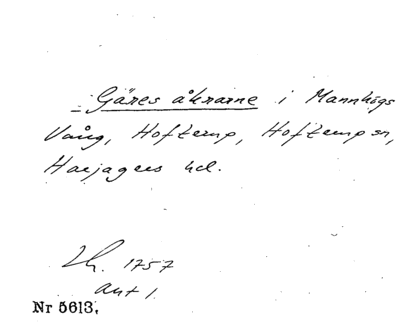 Gäres åkrarne i Mannhögs
Vång, Hofterup, Hofterup sn,
Harjagers hd.
Lh. 1757
akt 1.
Nr 5613.